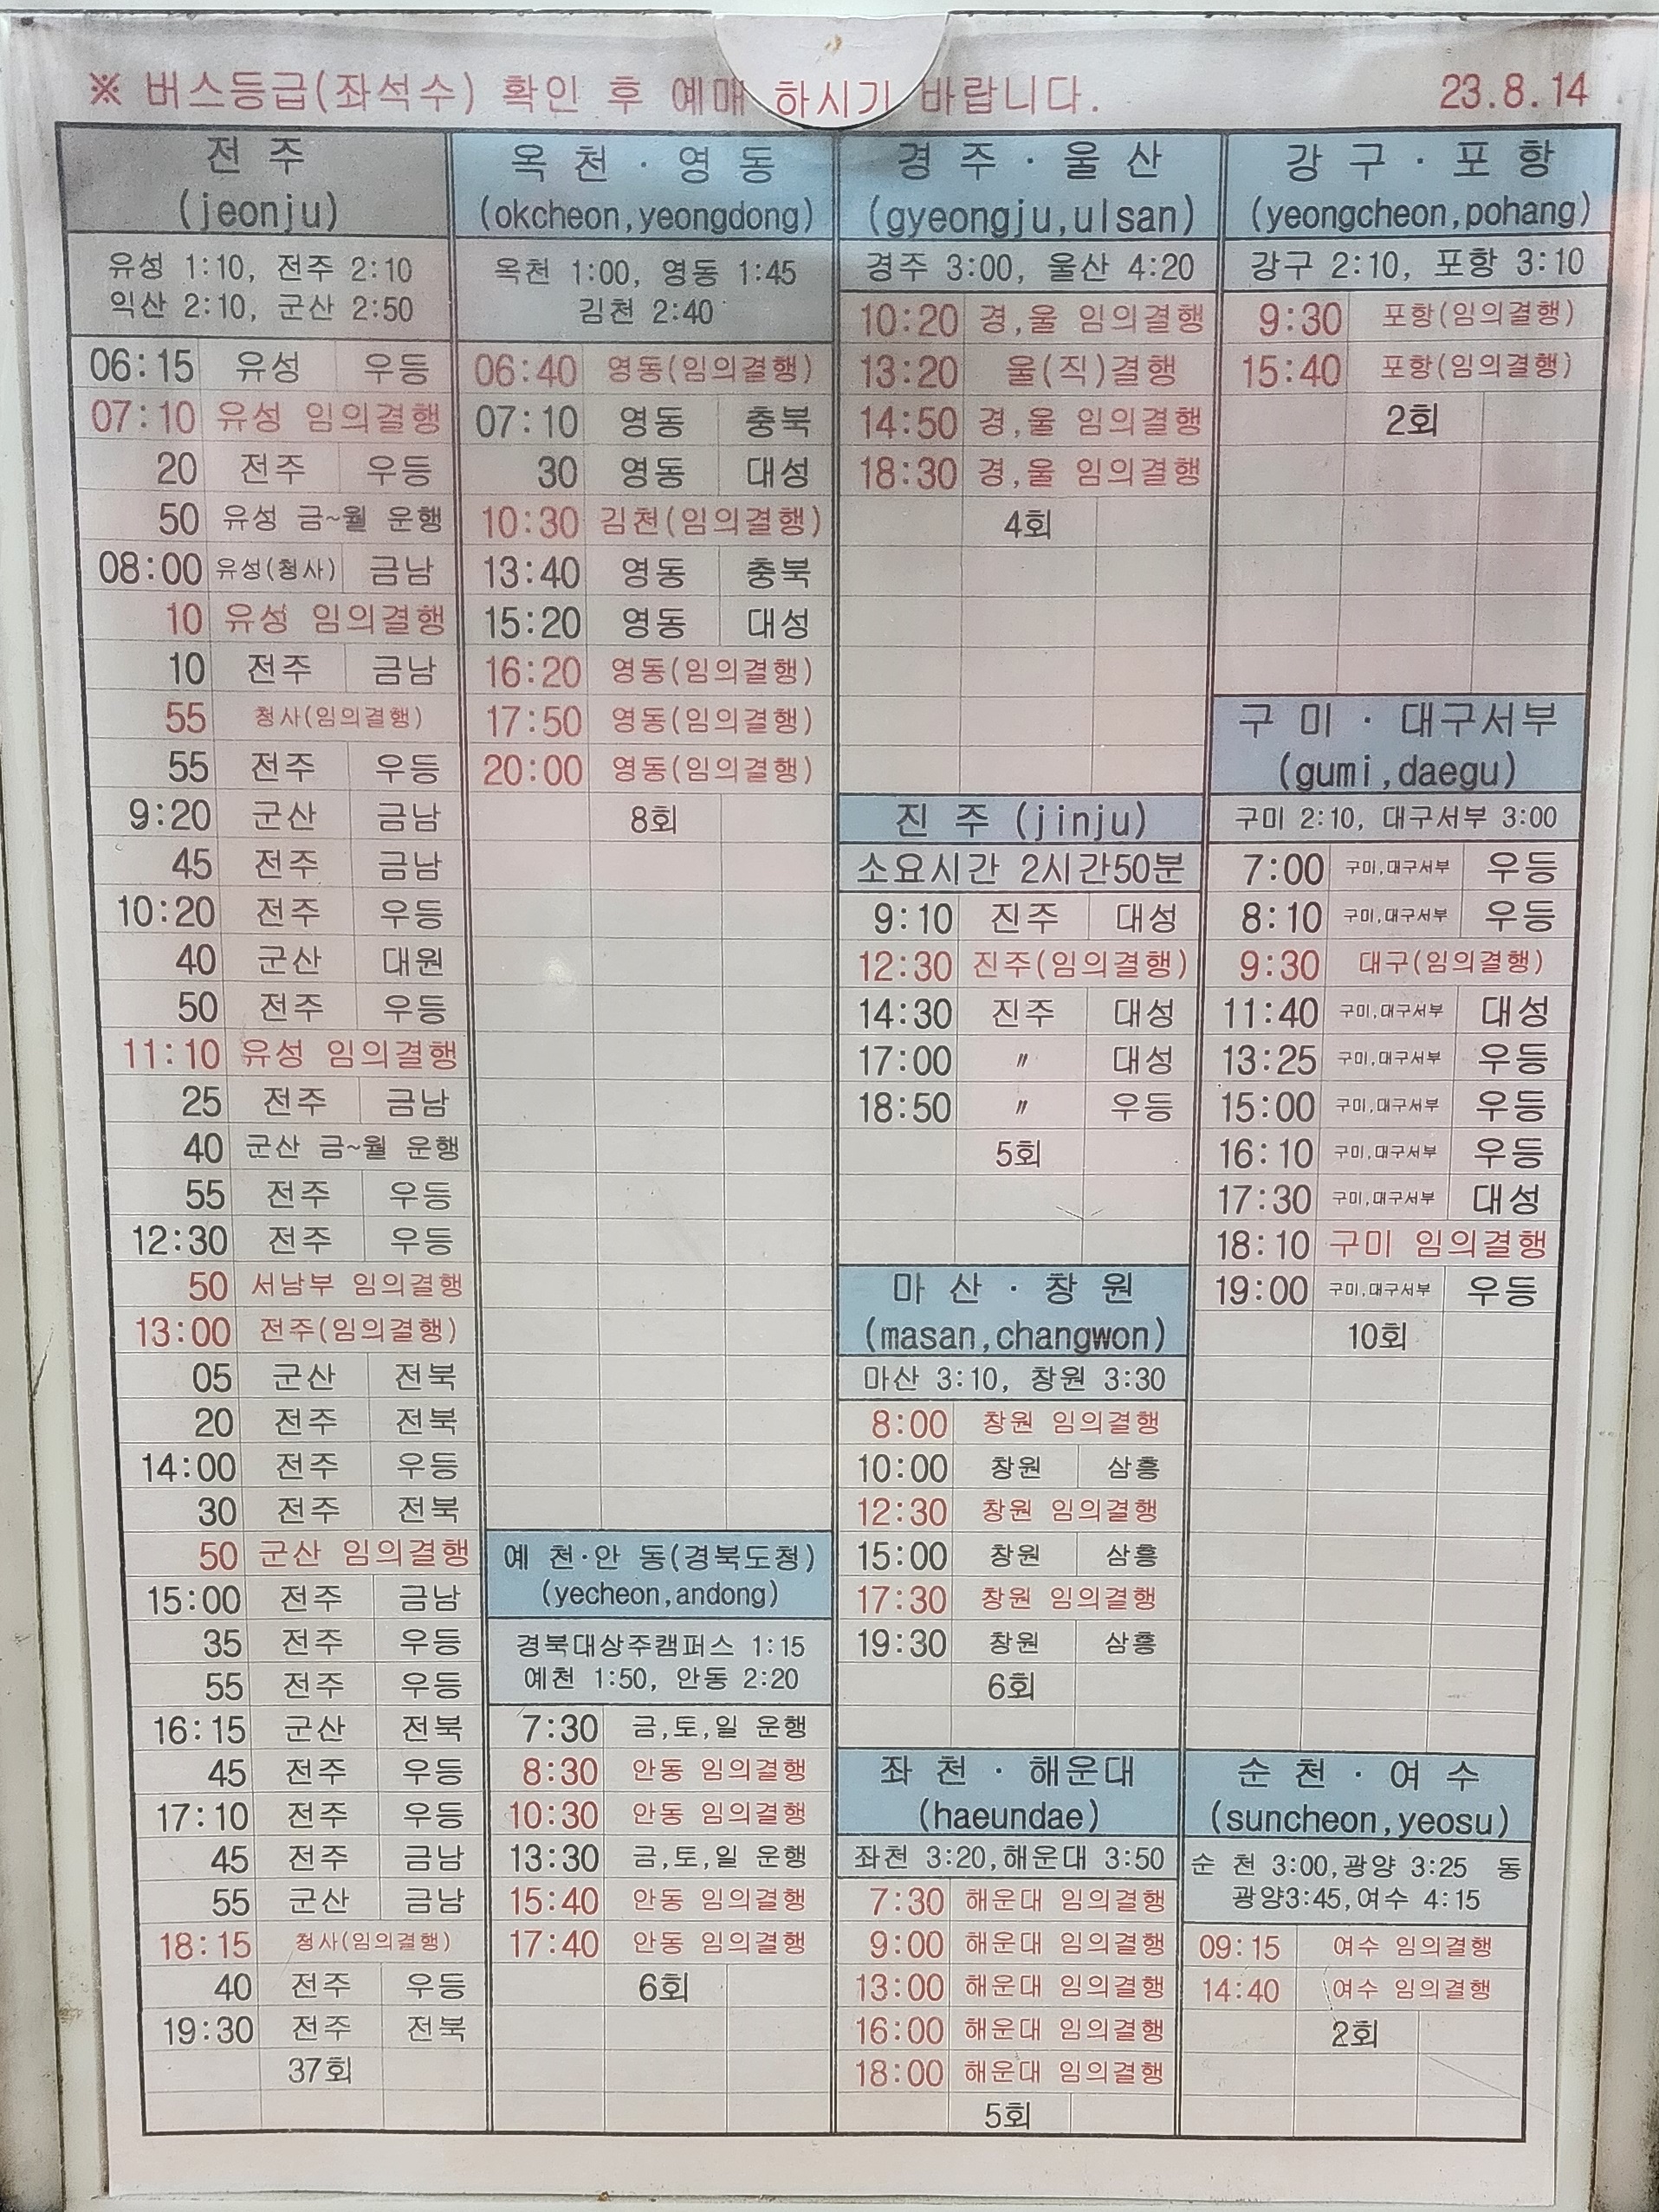 ※ 버스등급(좌석수) 확인 후 예매 하시기 바랍니다. 23.8.14
전 주
(jeonju)
유성 1:10, 전주 2:10
익산 2:10, 군산 2:50
06:15 유성 우등
07:10 유성 임의결행
20 전주 우등
50 유성 금~월 운행
08:00 유성(청사) 금남
10 유성 임의결행
10 전주 금남
55 청사(임의결행)
55 전주 우등
9:20 군산 금남
45 전주 금남
10:20 전주 우등
40 군산 대원
50 전주 우등
11:10 유성 임의결행
25 전주 금남
40 군산 금~월 운행
55 전주 우등
12:30 전주 우등
50 서남부 임의결행
13:00 전주(임의결행)
05 군산 전북
20 전주 전북
14:00 전주 우등
30 전주 전북
50 군산 임의결행
15:00 전주 금남
35 전주 우등
55 전주 우등
16:15 군산 전북
45 전주 우등
17:10 전주 우등
45 전주 금남
55 군산 금남
18:15 청사(임의결행)
40 전주 우등
19:30 전주 전북
37회
옥 천 · 영 동
(okcheon,yeongdong)
옥천 1:00, 영동 1:45
김천 2:40
06:40 영동(임의결행)
07:10 영동 충북
30 영동 대성
10:30 김천(임의결행)
13:40 영동 충북
15:20 영동 대성
16:20 영동(임의결행)
17:50 영동(임의결행)
20:00 영동(임의결행)
8회
예 천·안 동(경북도청)
(yecheon,andong)
경북대상주캠퍼스 1:15
예천 1:50, 안동 2:20
7:30 금,토,일 운행
8:30 안동 임의결행
10:30 안동 임의결행
13:30 금,토,일 운행
15:40 안동 임의결행
17:40 안동 임의결행
6회
경 주 · 울 산
(gyeongju,ulsan)
경주 3:00, 울산 4:20
10:20 경,울 임의결행
13:20 울(직)결행
14:50 경,울 임의결행
18:30 경,울 임의결행
4회
진 주 (jinju)
소요시간 2시간50분
9:10 진주 대성
12:30 진주(임의결행)
14:30 진주 대성
17:00 〃 대성
18:50 〃 우등
5회
마 산 · 창 원
(masan,changwon)
마산 3:10, 창원 3:30
8:00 창원 임의결행
10:00 창원 삼흥
12:30 창원 임의결행
15:00 창원 삼흥
17:30 창원 임의결행
19:30 창원 삼흥
6회
좌 천 · 해운대
(haeundae)
좌천 3:20,해운대 3:50
7:30 해운대 임의결행
9:00 해운대 임의결행
13:00 해운대 임의결행
16:00 해운대 임의결행
18:00 해운대 임의결행
5회
강 구 · 포 항
(yeongcheon,pohang)
강구 2:10, 포항 3:10
9:30 포항(임의결행)
15:40 포항(임의결행)
2회
구 미 · 대구서부
(gumi,daegu)
구미 2:10, 대구서부 3:00
7:00 구미,대구서부 우등
8:10 구미,대구서부 우등
9:30 대구(임의결행)
11:40 구미,대구서부 대성
13:25 구미,대구서부 우등
15:00 구미,대구서부 우등
16:10 구미,대구서부 우등
17:30 구미,대구서부 대성
18:10 구미 임의결행
19:00 구미,대구서부 우등
10회
순 천 · 여 수
(suncheon,yeosu)
순 천 3:00,광양 3:25 동
광양3:45,여수 4:15
09:15 여수 임의결행
14:40 여수 임의결행
2회